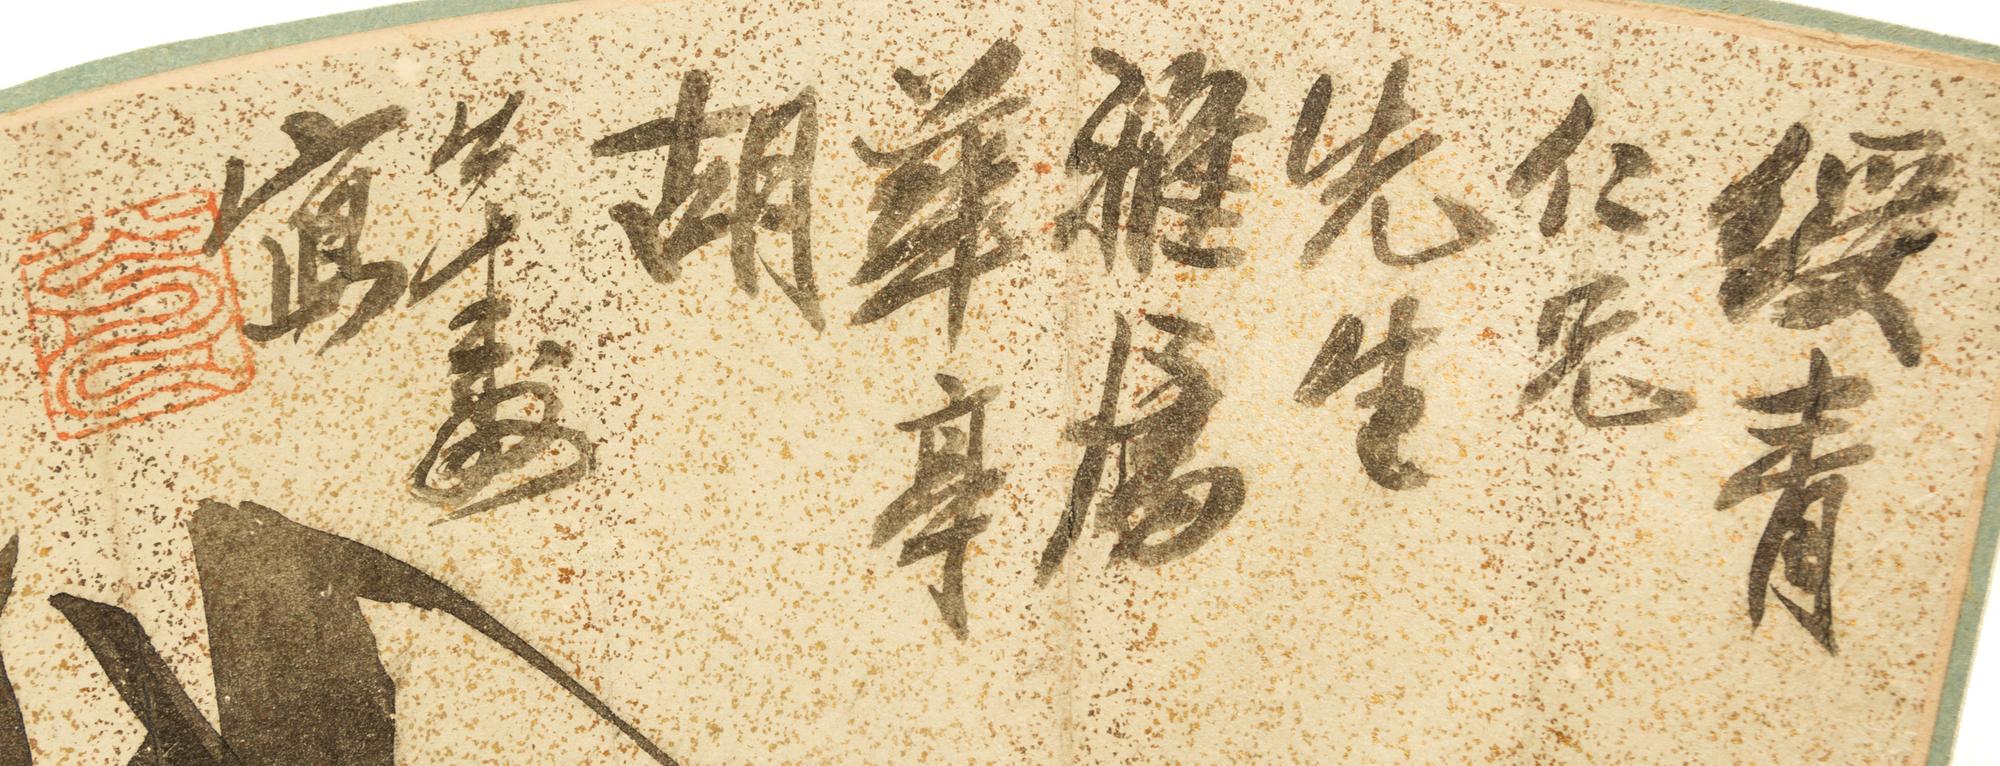 綬青
仁兄
先生
雅屬
華亭
胡
公壽
寫